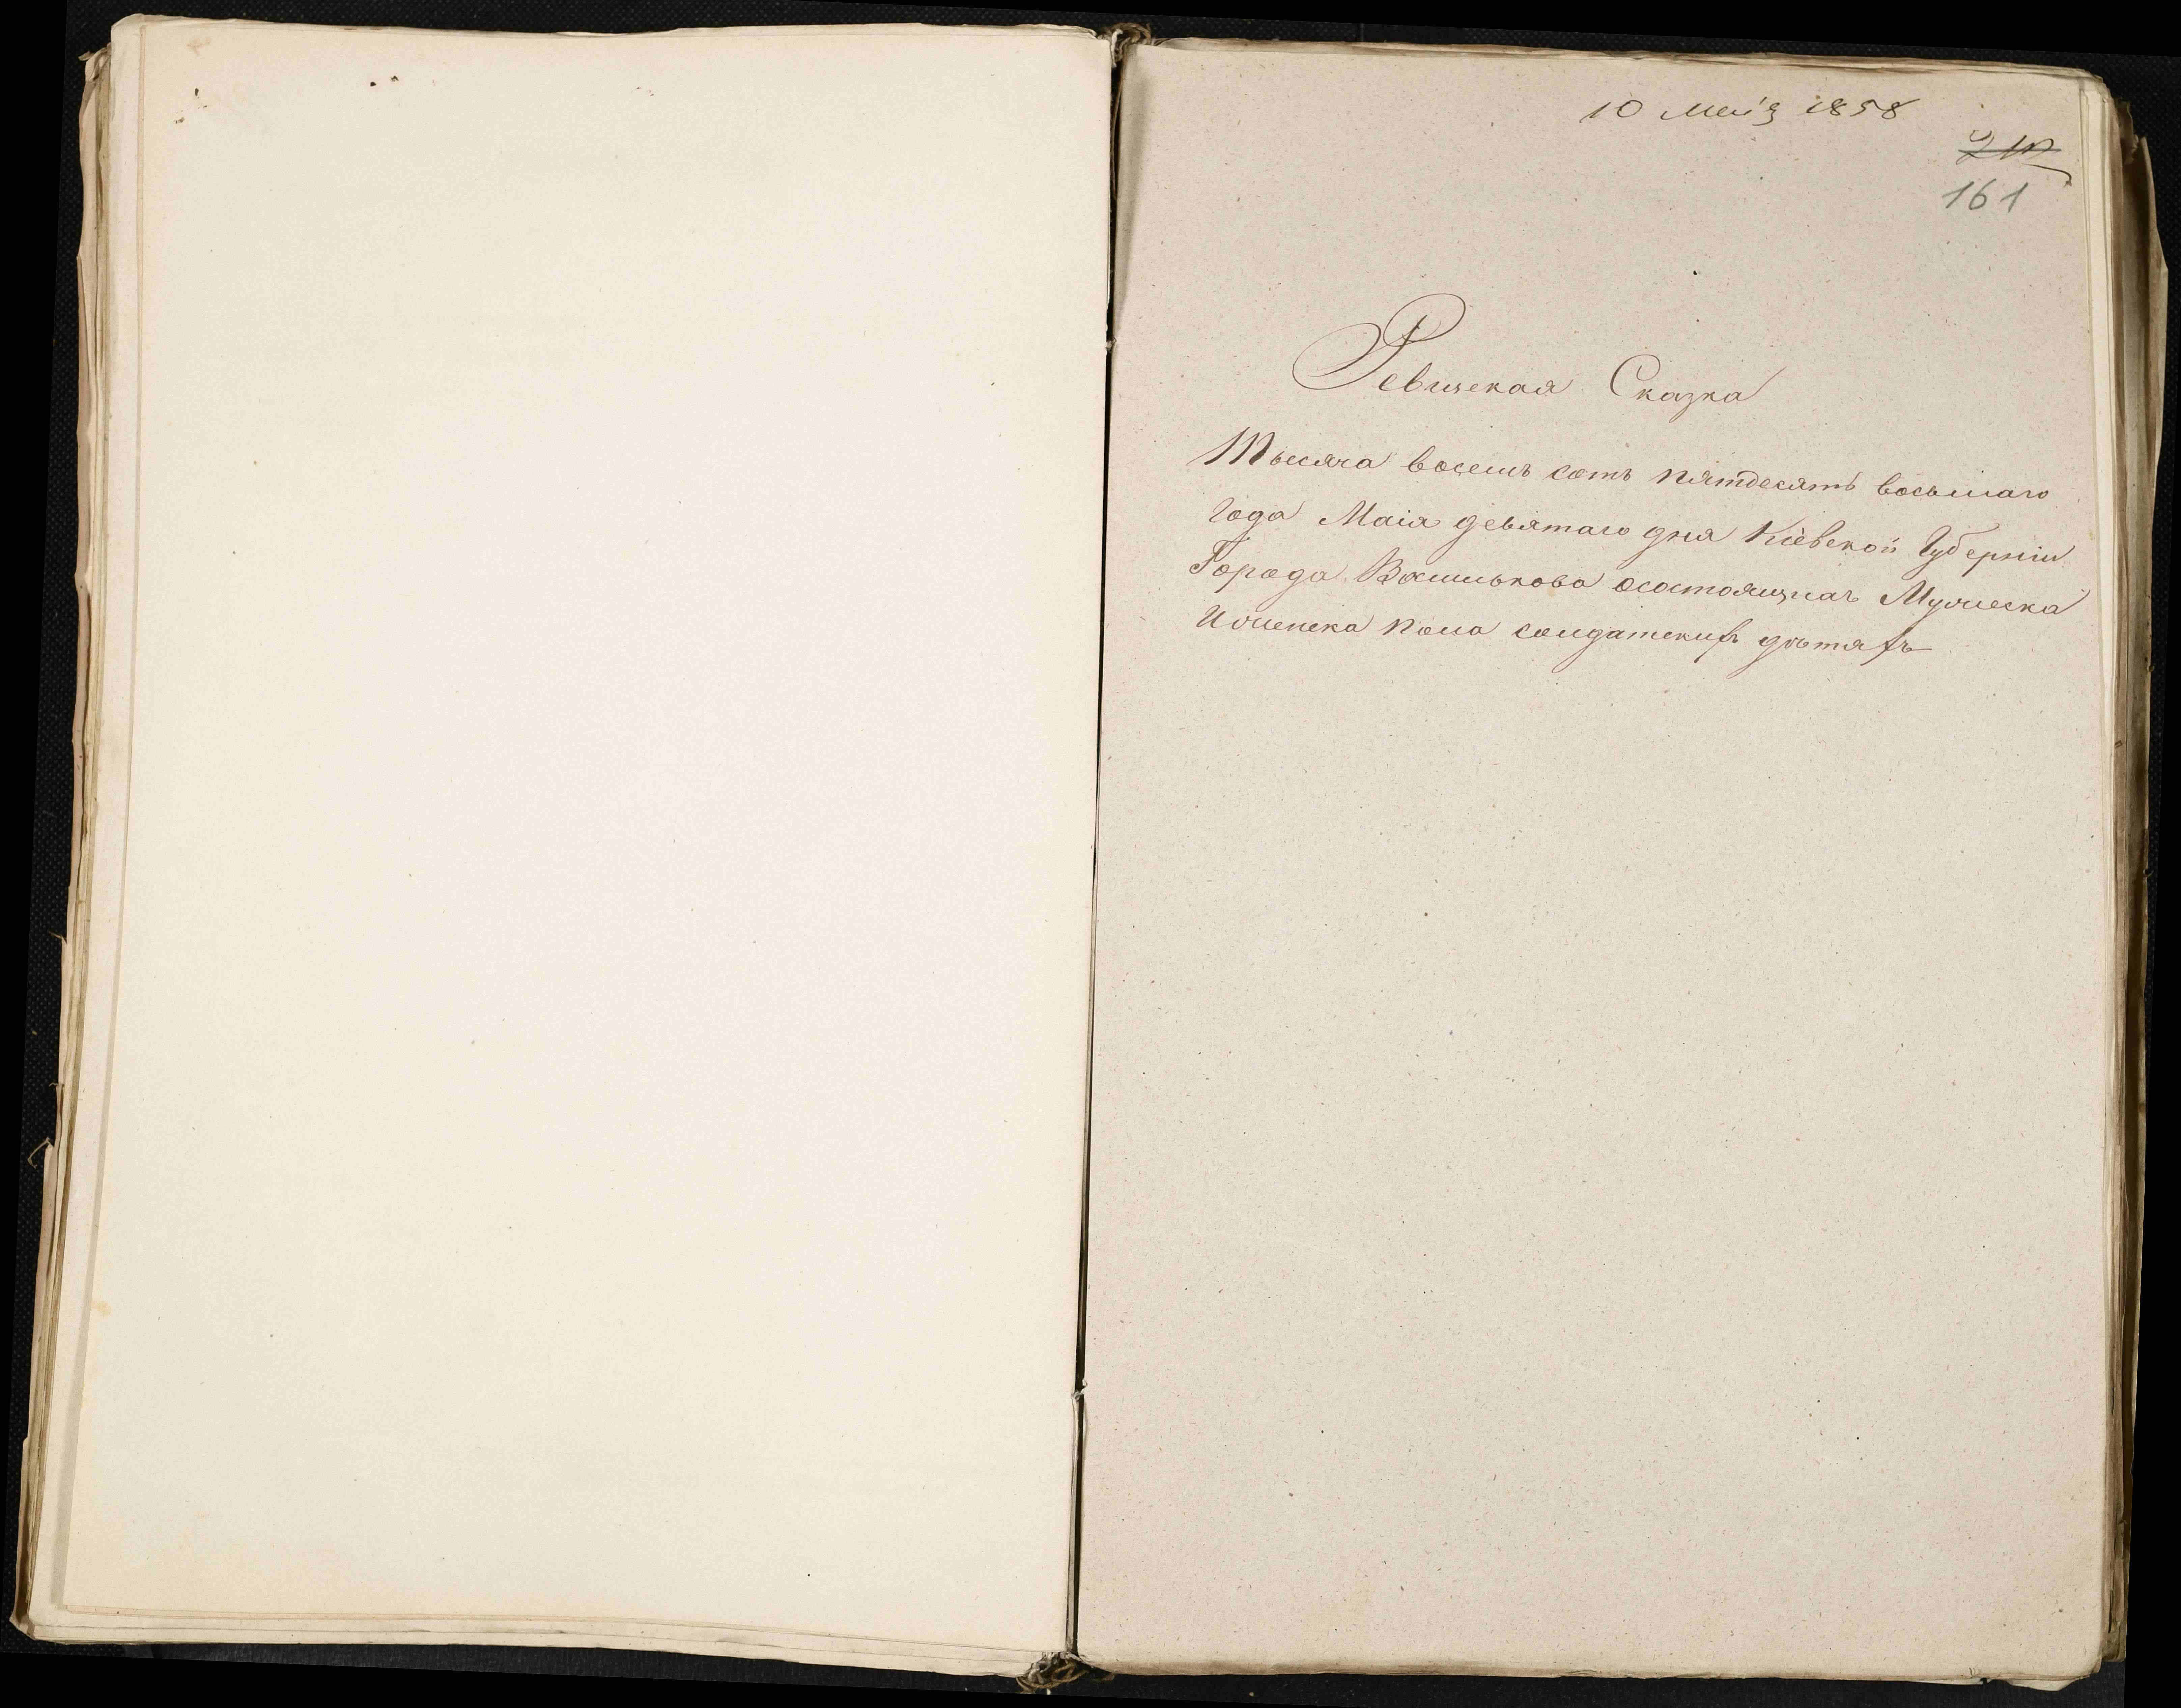 10 Маія 1858
161
Ревизская Сказка
Тысяча восемь сотъ пятдесятъ восьмаго
Года Маія девятаго дня Кіевской Губерніи
Города Василькова осостоящихъ Мужеска
Иженска пола солдатскихъ дѣтяхъ